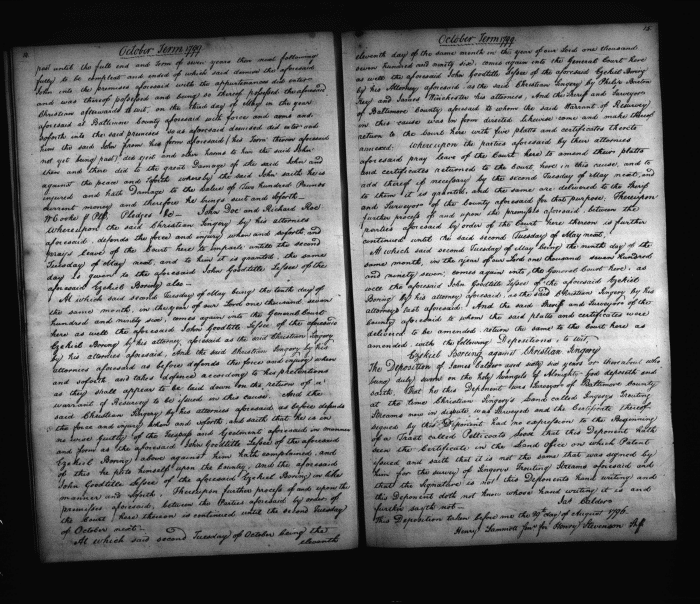 October Term 1799
past until the full end and term of seven years then next following
fully to be compleat and ended of which said demise the aforesaid
John into the premises aforesaid with the appurtenances did enter
and was thereof possessed and being so thereof possessed the aforesaid
Christian afterwards to wit, on the third day of May in the year
aforesaid at Baltimore County aforesaid with force and arms and
soforth into the said premises as aforesaid demised did enter and
him the said John from his farm aforesaid (his Term therein aforesaid
not yet being past) did eject and other harms to him the said John
then and there did to the great Damage of the said John and
against the peace and soforth whereby the said John saith he is
injured and hath Damage to the value of two hundred Pounds
current money and therefore he brings suit and soforth
Pledges &c John Doe and Richard Roe
Whereupon the said Christian Gingery by his attornies
aforesaid, defends the force and injury when and soforth and
prays leave of the Court here to imparle until the second
Tuesday of May next, and to him it is granted, the same
day is given to the aforesaid John Goodtitle Lessee of the
aforesaid Ezekiel Boring also
At which said second Tuesday of May being the tenth day of
the same month, in the year of our Lord one thousand seven
hundred and ninety six, comes again into the General Court
here as well the aforesaid John Goodtitle Lessee of the aforesaid
Ezekiel Boring by his attorney aforesaid, as the said Christian Gingery
by his attornies aforesaid, And the said Christian Gingery by his
attornies aforesaid as before defends the force and injury when
and soforth and takes defence according to his pretentions
as they shall appear to be laid down on the return of a
warrant of Resurvey to be issued in this cause And the
said Christian Gingery by his attornies aforesaid as before defends
the force and injury when and soforth and saith that he is in
no wise guilty of the Trespass and Ejectment aforesaid in manner
and form as the aforesaid John Goodtitle Lessee of the aforesaid
Ezekiel Boring above against him hath complained, and
of this he puts himself upon the Country, and the aforesaid
John Goodtitle Lessee of the aforesaid Ezekiel Boring in like
manner and soforth, Thereupon further process of and upon the
premises aforesaid, between the Parties aforesaid by order of
the Court here thereon is continued until the second Tuesday
of October next
At which said second Tuesday of October being the
eleventh
October Term 1799
eleventh day of the same month in the year of our Lord one thousand
seven hundred and ninety six, comes again into the General Court here
as well the aforesaid John Goodtitle Lessee of the aforesaid Ezekiel Boring
by his Attorney aforesaid, as the said Christian Gingery by Philip Barton
Key and James Winchester his attornies, And the Sheriff and Surveyor
of Baltimore County aforesaid to whom the said Warrant of Resurvey
in this cause was in form directed likewise come and make thereof
return to the Court here with five plats and certificates thereto
annexed. Whereupon the parties aforesaid by their attornies
aforesaid pray leave of the Court here to amend their plats
and certificates returned to the Court here in this cause, and to
add thereto if necessary by the second Tuesday of May next, and
to them it is granted, and the same are delivered to the Sheriff
and Surveyor of the County aforesaid for that purpose Thereupon
further process of and upon the premises aforesaid between the
parties aforesaid by order of the Court here thereon is further
continued until the said second Tuesday of May next,
At which said second Tuesday of May being the ninth day of the
same month, in the year of our Lord one thousand seven hundred
and ninety seven, comes again into the General Court here, as
well the aforesaid John Goodtitle Lessee of the aforesaid Ezekiel
Boring by his attorney aforesaid, as the said Christian Gingery by his
attornies last aforesaid, And the said Sheriff and Surveyor of the
County aforesaid to whom the said plats and certificates were
delivered to be amended, return the same to the Court here as
amended, with the following Depositions, to wit
Ezekiel Boring against Christian Gingery
The Deposition of James Calder aged sixty six years or thereabout who
being duly sworn on the holy Evangely of Almighty God deposeth and
saith, That he this Deponent was Surveyor of Baltimore County
at the time Christian Gingery's Land called Gingery's Trouting
Streams now in dispute was Surveyed and the Certificate thereof
signed by this Deponent had no expression to the Beginning
of a Tract called Petticoats Loose that this Deponent hath
seen the Certificate in the Land Office on which Patent
issued and saith that it is not the same that was signed by
him for the survey of Gingerys Trouting Streams aforesaid and
that the Signature is not this Deponents hand writing and
this Deponent doth not know whose hand writing it is and
further saith not
Jas Calder
This Deposition taken before me the 29th day of August 1796.
Henry Lammott Junr for Henry Stevenson Shff